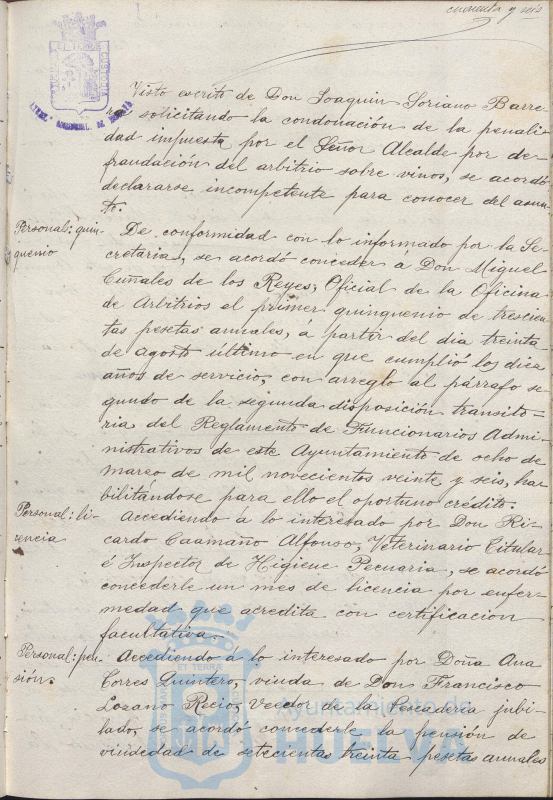 cuarenta y seis
Visto escrito de Don Joaquin Soriano Barre
solicitando la condonación de la penali-
dad impuesta por el Señor Alcalde por de-
fraudación del arbitrio sobre vinos, se acordó
declararse incompetente para conocer del asun-
to.
Personal: quin-
quenio
De conformidad con lo informado por la Se-
cretaria, se acordó conceder á Don Miguel
Cuñales de los Reyes, Oficial de la Oficina
de Arbitrios el primer quinquenio de trescien-
tas pesetas anuales, á partir del dia treinta
de agosto último en que cumplió los diez
años de servicio, con arreglo al párrafo se-
gundo de la segunda disposición transito-
ria del Reglamento de Funcionarios Admi-
nistrativos de este Ayuntamiento de ocho de
marzo de mil novecientos veinte y seis, ha-
bilitándose para ello el oportuno crédito.
Personal: li-
cencia
Accediendo á lo interesado por Don Ri-
cardo Caamaño Alfonso, Veterinario Titular
é Inspector de Higiene Pecuaria, se acordó
concederle un mes de licencia por enfer-
medad que acredita con certificacion
facultativa.
Personal: pen-
sión.
Accediendo á lo interesado por Doña Ana
Torres Quintero, viuda de Don Francisco
Lozano Recio, Veedor de la Pescaderia jubi-
lado, se acordó concederle la pensión de
viudedad de setecientas treinta pesetas anuales
Ayuntamiento de
HUELVA